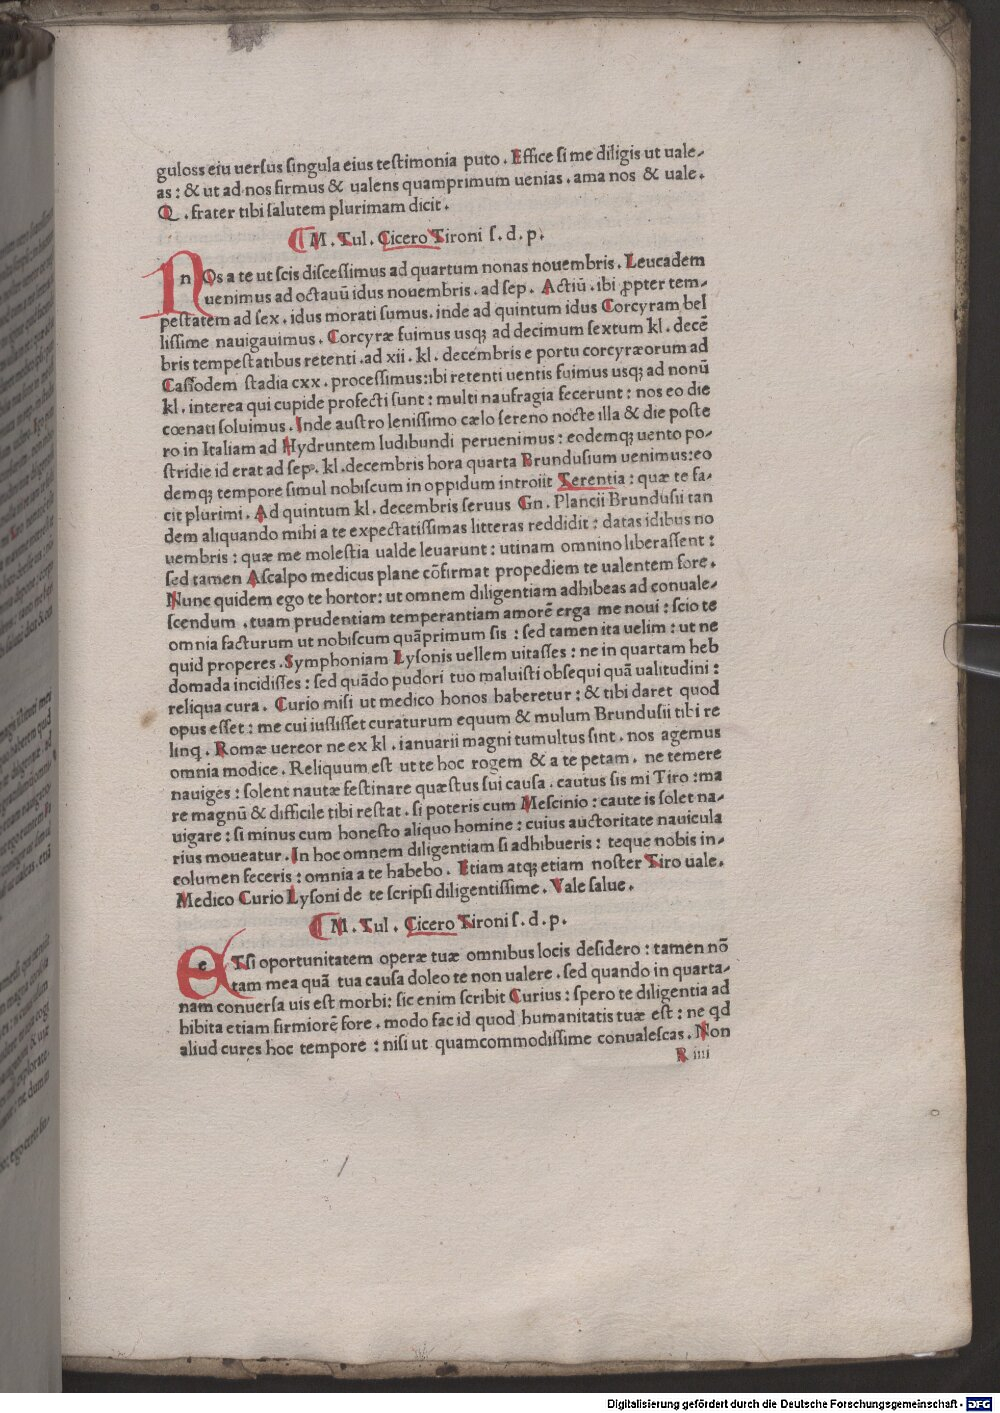 guloss eiu uersus singula eius testimonia puto . Effice si me diligis ut uale-
as : & ut ad nos firmus & ualens quamprimum uenias . ama nos & uale .
Q . frater tibi salutem plurimam dicit .
M . Tul . Cicero Tironi s . d . p .
nOs a te ut scis discessimus ad quartum nonas nouembris . Leucadem
uenimus ad octauū idus nouembris . ad sep . Actiū . ibi ꝓpter tem-
pestatem ad sex . idus morati sumus . inde ad quintum idus Corcyram bel
lissime nauigauimus . Corcyræ fuimus usqꝫ ad decimum sextum kl . decē
bris tempestatibus retenti . ad xii . kl . decembris e portu corcyræorum ad
Cassiodem stadia cxx . processimus : ibi retenti uentis fuimus usqꝫ ad nonū
kl . interea qui cupide profecti sunt : multi naufragia fecerunt : nos eo die
cœnati soluimus . Inde austro lenissimo cælo sereno nocte illa & die poste
ro in Italiam ad Hydruntem ludibundi peruenimus : eodemqꝫ uento po-
stridie id erat ad sep . kl . decembris hora quarta Brundusium uenimus : eo
demqꝫ tempore simul nobiscum in oppidum introiit Terentia : quæ te fa-
cit plurimi . Ad quintum kl . decembris seruus Gn . Plancii Brundusii tan
dem aliquando mihi a te expectatissimas litteras reddidit : datas idibus no
uembris : quæ me molestia ualde leuarunt : utinam omnino liberassent :
sed tamen Ascalpo medicus plane cōfirmat propediem te ualentem fore .
Nunc quidem ego te hortor : ut omnem diligentiam adhibeas ad conuale-
scendum . tuam prudentiam temperantiam amorē erga me noui : scio te
omnia facturum ut nobiscum quāprimum sis : sed tamen ita uelim : ut ne
quid properes . Symphoniam Lysonis uellem uitasses : ne in quartam heb
domada incidisses : sed quādo pudori tuo maluisti obsequi quā ualitudini :
reliqua cura . Curio misi ut medico honos haberetur : & tibi daret quod
opus esset : me cui iussisset curaturum equum & mulum Brundusii tibi re
linq . Romæ uereor ne ex kl . ianuarii magni tumultus sint . nos agemus
omnia modice . Reliquum est ut te hoc rogem & a te petam . ne temere
nauiges : solent nautæ festinare quæstus sui causa . cautus sis mi Tiro : ma
re magnū & difficile tibi restat . si poteris cum Mescinio : caute is solet na-
uigare : si minus cum honesto aliquo homine : cuius auctoritate nauicula
rius moueatur . In hoc omnem diligentiam si adhibueris : teque nobis in-
columen feceris : omnia a te habebo . Etiam atqꝫ etiam noster Tiro uale .
Medico Curio Lysoni de te scripsi diligentissime . Vale salue .
M . Tul . Cicero Tironi s . d . p .
eTsi oportunitatem operæ tuæ omnibus locis desidero : tamen nō
tam mea quā tua causa doleo te non ualere . sed quando in quarta-
nam conuersa uis est morbi : sic enim scribit Curius : spero te diligentia ad
hibita etiam firmiorē fore . modo fac id quod humanitatis tuæ est : ne qd
aliud cures hoc tempore : nisi ut quamcommodissime conualescas . Non
R iiii
Digitalisierung gefördert durch die Deutsche Forschungsgemeinschaft - DFG